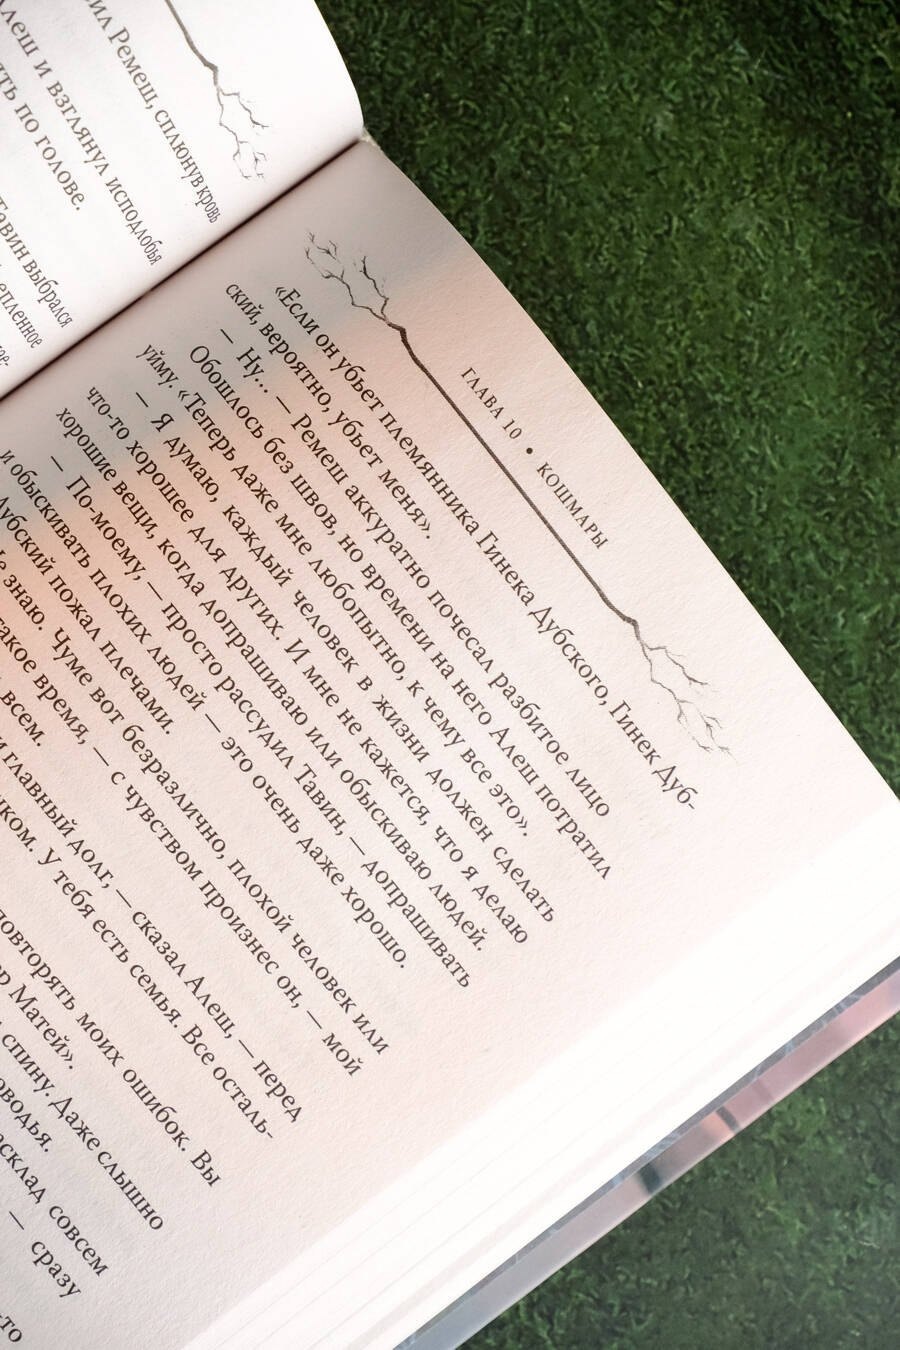 сил Ремеш, сплюнув кровь
Алеш и взглянул исподлобья
по голове.
Тавин выбрался
ГЛАВА 10 • КОШМАРЫ
«Если он убьет племянника Гинека Дубского, Гинек Дуб-
ский, вероятно, убьет меня».
— Ну... — Ремеш аккуратно почесал разбитое лицо
Обошлось без швов, но времени на него Алеш потратил
уйму. «Теперь даже мне любопытно, к чему все это».
— Я думаю, каждый человек в жизни должен сделать
что-то хорошее для других. И мне не кажется, что я делаю
хорошие вещи, когда допрашиваю или обыскиваю людей.
— По-моему, — просто рассудил Тавин, — допрашивать
и обыскивать плохих людей — это очень даже хорошо.
Дубский пожал плечами.
Не знаю. Чуме вот безразлично, плохой человек или
такое время, — с чувством произнес он, — мой
всем.
главный долг, — сказал Алеш, — перед
У тебя есть семья. Все осталь-
повторять моих ошибок. Вы
Матей».
спину. Даже слышно
расклад совсем
— сразу